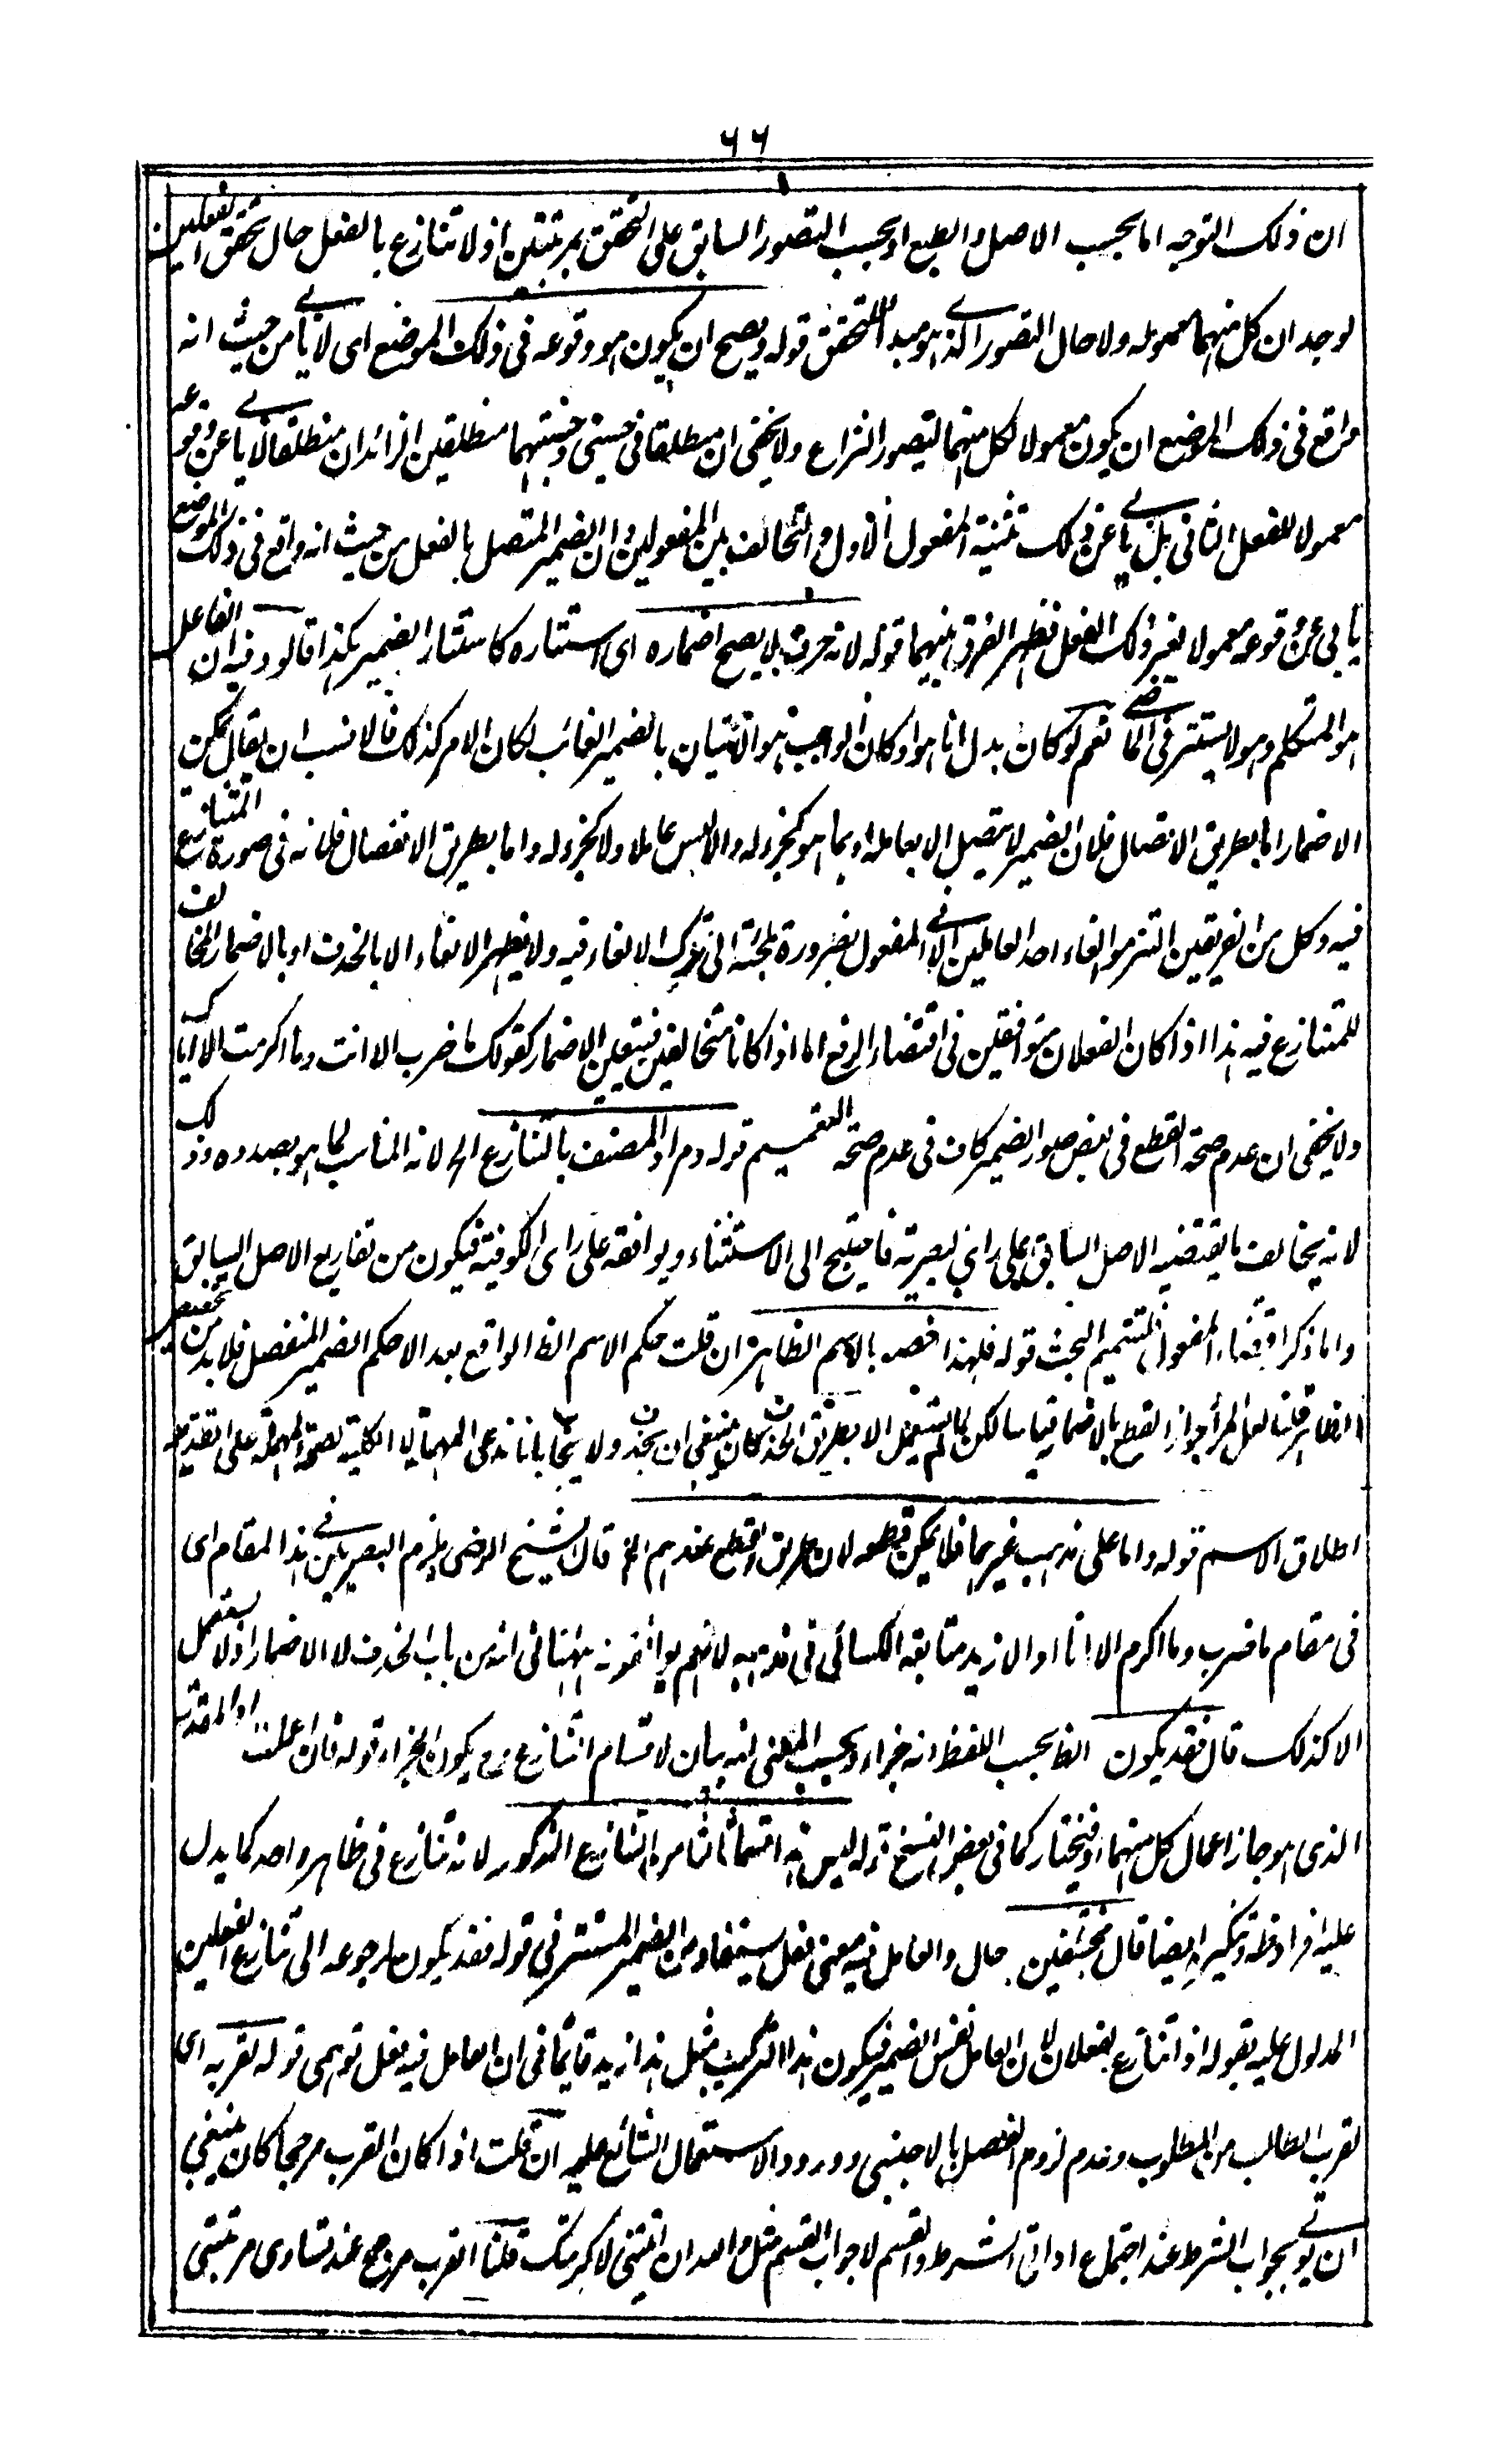 ٦٦
ان ذلك التوجه اما بحسب الاصل والطبع او بحسب التصور السابق على التحقق بمرتبتين اذ لا تنازع بالفعل حال تحقق الفعلين
لوجدان كل منهما معموله ولا حال التصور الذي هو مبدأ التحقق قوله ويصح ان يكون هو وقوعه في ذلك الموضع اى لا يأبى من حيث انه
واقع في ذلك الموضع ان يكون معمولا لكل منهما ليتصور النزاع ولا يخفى ان منطلقا في حسبنى وحسبتهما منطلقين الزائدان منطلقا لا يأبى عن وقوعه
معمولا للفعل الثاني بل يأبى عن ذلك تثنية المفعول الاول والتخالف بين المفعولين وان الضمير المتصل بالفعل من حيث انه واقع في ذلك الموضع
يأبى عن وقوعه معمولا لغير ذلك الفعل فظهر الفرق بينهما قوله لانه حرف لا يصح اضماره اى استتاره كاستتار الضمير هكذا قالو وفيه ان الفاعل
هو المتكلم وهو لا يستتر في الماضي نعم لو كان بدل انا هو او كان الواجب هو الاتيان بالضمير الغائب لكان الامر كذلك فالانسب ان يقال لا يمكن
الاضمار اما بطريق الاتصال فلان الضمير لا يتصل الا بعامله او بما هو كجزء له والا ليس عاملا ولا كجزء له واما بطريق الانفصال فلانه في صورة المتنازع
فيه وكل من الفريقين التزموا الغاء احد العاملين الا في المفعول بضرورة ملجئة الى ترك الالغاء فيه ولا يظهر الالغاء الا بالحذف او بالاضمار المخالف
للمتنازع فيه هذا اذا كان الفعلان متوافقين في اقتضاء الرفع اما اذا كانا متخالفين فيتعين الاضمار كقولك ما ضرب الا انت وما اكرمت الا اياك
ولا يخفى ان عدم صحة القطع في بعض صور الضمير كاف في عدم صحة التعميم قوله ومراد المصنف بالتنازع الخ لانه المناسب لما هو بصدده وذلك
لانه يخالف ما يقتضيه الاصل السابق على راى البصرية فاحتيج الى الاستثناء ويوافقه على راى الكوفية فيكون من تفاريع الاصل السابق
وانما ذكر اقتضاء المفعول لتتميم البحث قوله فلهذا خصه بالاسم الظاهر ان قلت حكم الاسم الظ الواقع بعد الا حكم الضمير المنفصل فلا بد من تخصيص
الظاهر قلنا لعل المراد جواز القطع بالاضمار قياسا لكن لما لم يستعمل الا بطريق الحذف كان ينبغى ان يحذف ولا يجاب بانا ندعى المهملة لا الكلية لصحة المهملة على تقدير
اطلاق الاسم قوله واما على مذهب غيرهما فلا يمكن قطعه لان طريق القطع عندهم الخ قال الشيخ الرضى يلزم البصريين في هذا المقام اى
في مقام ما ضرب وما اكرم الا انا او الا زيد متابعة الكسائى في مذهبه لانهم يوافقونه ههنا في انه من باب الحذف لا الاضمار اذ لا يستعمل
الا كذلك قال فقد يكون الظ بحسب اللفظ انه جزاء وبحسب المعنى انه بيان لاقسام التنازع وح يكون الجزاء قوله فان اعملت او المقدر
الذى هو جاز اعمال كل منهما او فيختار كما في بعض النسخ قوله ليس هذا قسما ثالثا من التنازع المذكور لانه تنازع في ظاهر واحد كما يدل
عليه افراد ظ وتنكيره ايضا قال مختلفين حال والعامل فيه معنى فعل يستفاد من الضمير المستتر في قوله فقد يكون لرجوعه الى تنازع الفعلين
المدلول عليه بقوله اذا تنازع الفعلان لا ان العامل نفس الضمير فيكون هذا التركيب مثل هذا زيد قائما في ان العامل فيه فعل توهمى قوله لقربه اى
لقرب الطالب من المطلوب وعدم لزوم الفصل بالاجنبى وورود الاستعمال الشائع عليه ان قلت اذا كان القرب مرجحا كان ينبغى
ان يؤتى بجواب الشرط عند اجتماع اداتى الشرط والقسم لا جواب القسم مثل والله ان اتيتنى لاكرمتك قلنا القرب مرجح عند تساوى مرتبتى